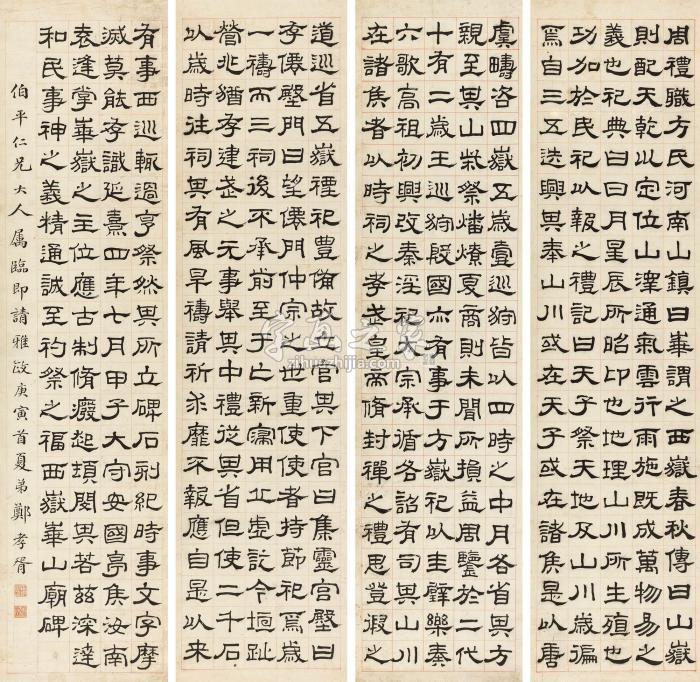 周禮職方氏河南山鎮曰崋謂之西嶽春秋傳曰山嶽
則配天乾㠯定位山澤通氣雲行雨施既成萬物易之
義也祀典曰日月星辰所昭卬也地理山川所生殖也
功加於民祀㠯報之禮記曰天子祭天地及山川歲徧
焉自三五迭興其奉山川或在天子或在諸矦是㠯唐
虞疇咨四嶽五歲壹巡狩皆㠯四時之中月各省其方
親至其山柴祭燔燎夏商則未聞所損益周鑒於二代
十有二歲王巡狩殷國亦有事于方嶽祀㠯圭璧樂奏
六歌高祖初興改秦淫祀大宗承循各詔有司其山川
在諸矦者㠯時祠之孝武皇帝脩封禪之禮思登遐之
道巡省五嶽禋祀豊備故立宮其下宮曰集靈宮壂曰
存僊壂門曰望僊門仲宗之世重使使者持節祀焉歲
一禱而三祠後不承前至于亡新寖用丘虛訖今垣趾
營兆猶存建武之元事舉其中禮從其省但使二千石
㠯歲時往祠其有風旱禱請祈求靡不報應自是㠯來
有事西巡輒過亨祭然其所立碑石刻紀時事文字摩
滅莫能存識延熹四年七月甲子大守安國亭矦汝南
袁逢掌崋嶽之主位應古制脩癈起頓閔其若茲深達
和民事神之義精通誠至礿祭之福西嶽崋山廟碑
伯平仁兄大人属臨即請雅政庚寅首夏弟鄭孝胥
字画之家
zihuazhijia.com